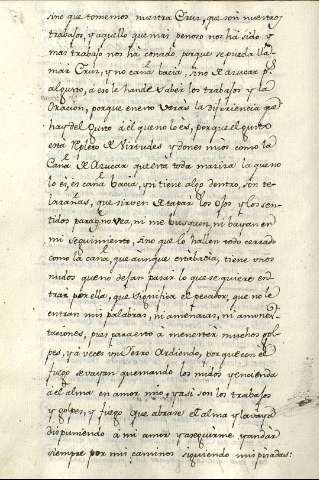 sino que tomemos nuestra Cruz, que son nuestros
trabajos, y aquello que mas penoso nos ha sido y
mas trabajo nos ha costado, porque se pueda lla-
mar Cruz, y no caña bacia, sino de azucar
alguno, a eso le hande saber los trabajos y la
Oracion, porque en esto veras la diferiencia que
hay del Justo á el que no lo es, porque el justo
esta Repleto de Virtudes y dones mios como la
Caña de Azucar que esta toda maziza la que no
lo es, es caña bacia, y si tiene algo dentro, son te-
larañas, que sirven de tapar los ojos y los sen-
tidos para q. no vea, ni me busquen, ni bayan en
mi seguimiento, sino que lo hallen todo cerrado
como la caña, que aunque esta bacia, tiene unos
nudos que no dejan pasar lo que se quiere en-
trar por ella, que significa el pecador, que no le
entran mis palabras, ni amenazas, ni amones-
taciones, pues para esto á menester muchos gol-
pes, y a veces un Ierro Ardiendo, por que con el
fuego se vayan quemando los nudos y encienda
á el alma en amor mio, y asi son los trabajos
y golpes, y fuego que abrase el alma y la vaya
disponiendo á mi amor y a seguirme y andar
siempre por mis caminos siguiendo mis pisadas: